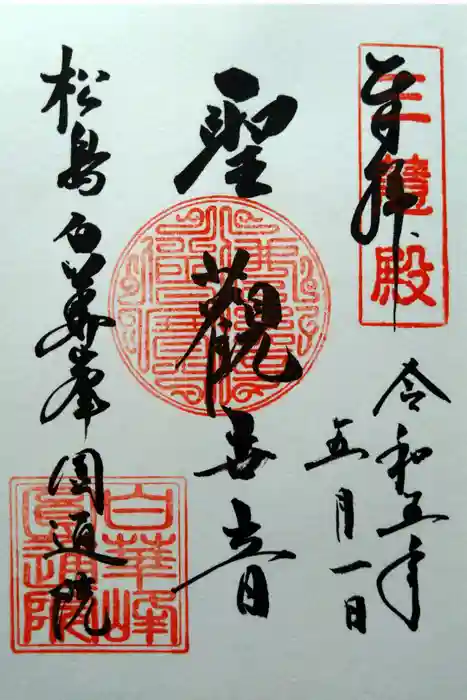 奉拝
三慧殿
令和五年
五月一日
聖觀世音
松島白華峯圓通院
白華峰
圓通院